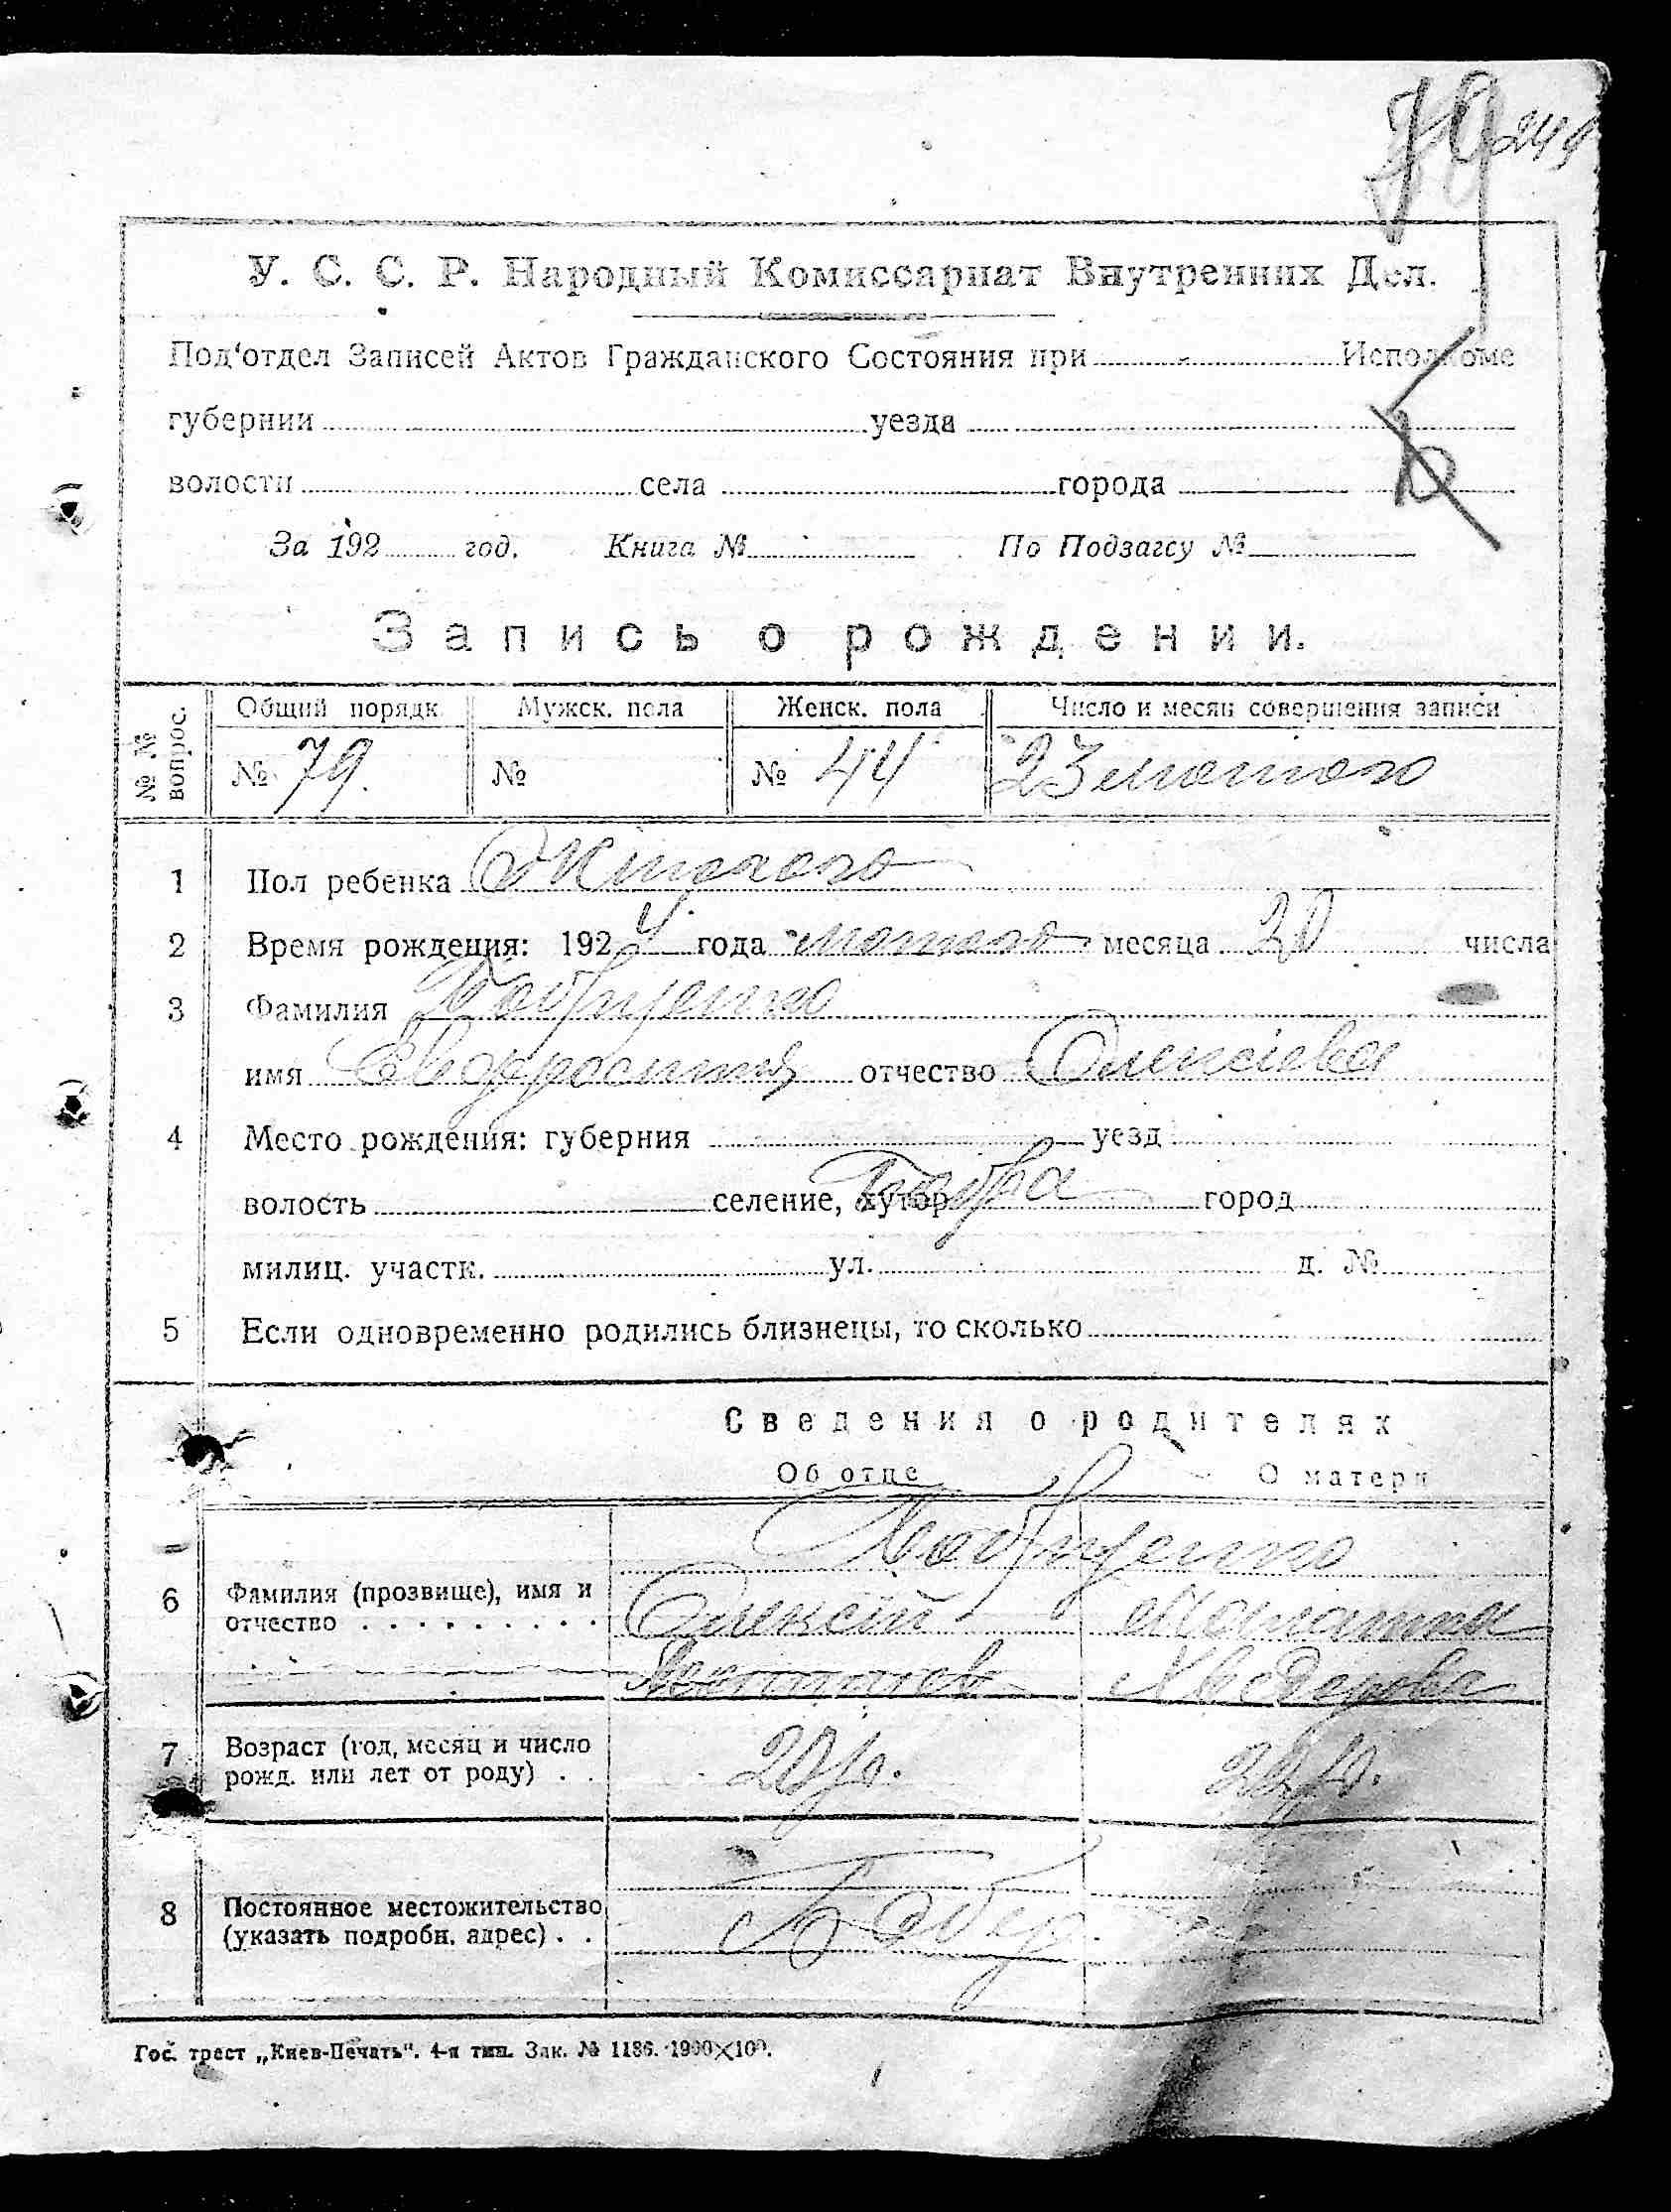 79 244
У. С. С. Р. Народный Комиссариат Внутренних Дел.
Под'отдел Записей Актов Гражданского Состояния при Исполкоме
губернии уезда
волости села города
За 192 год. Книга № По Подзагсу №
Запись о рождении.
№ № вопрос. Общий порядк. Мужск. пола Женск. пола Число и месяц совершения записи
№ 79. № № 44 23 лютого
1 Пол ребенка Жіночого
2 Время рождения: 1924 года лютого месяца 20 числа
3 Фамилия
имя отчество Олексієва
4 Место рождения: губерния уезд
волость селение, хутор город
милиц. участк. ул. д. №
5 Если одновременно родились близнецы, то сколько
Сведения о родителях
Об отце О матери
6 Фамилия (прозвище), имя и
отчество Олексій
Хведерова
7 Возраст (год, месяц и число
рожд. или лет от роду) 20 р. 22 р.
8 Постоянное местожительство
(указать подробн. адрес)
Гос. трест „Киев-Печать". 4-я тип. Зак. № 1186. 1900×100.